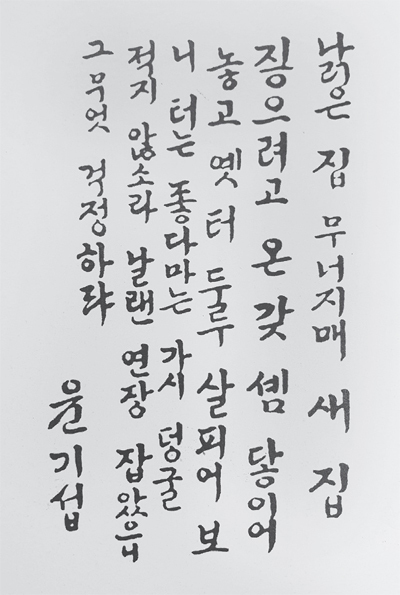 낡은 집 무너지매 새 집
짛으려고 온 갖 셈 닿이어
놓고 옛 터 둘루 살피어 보
니 터는 좋다마는 가시 덩굴
적지 않소라 날랜 연장 잡았으니
그 무엇 걱정하랴
윤기섭